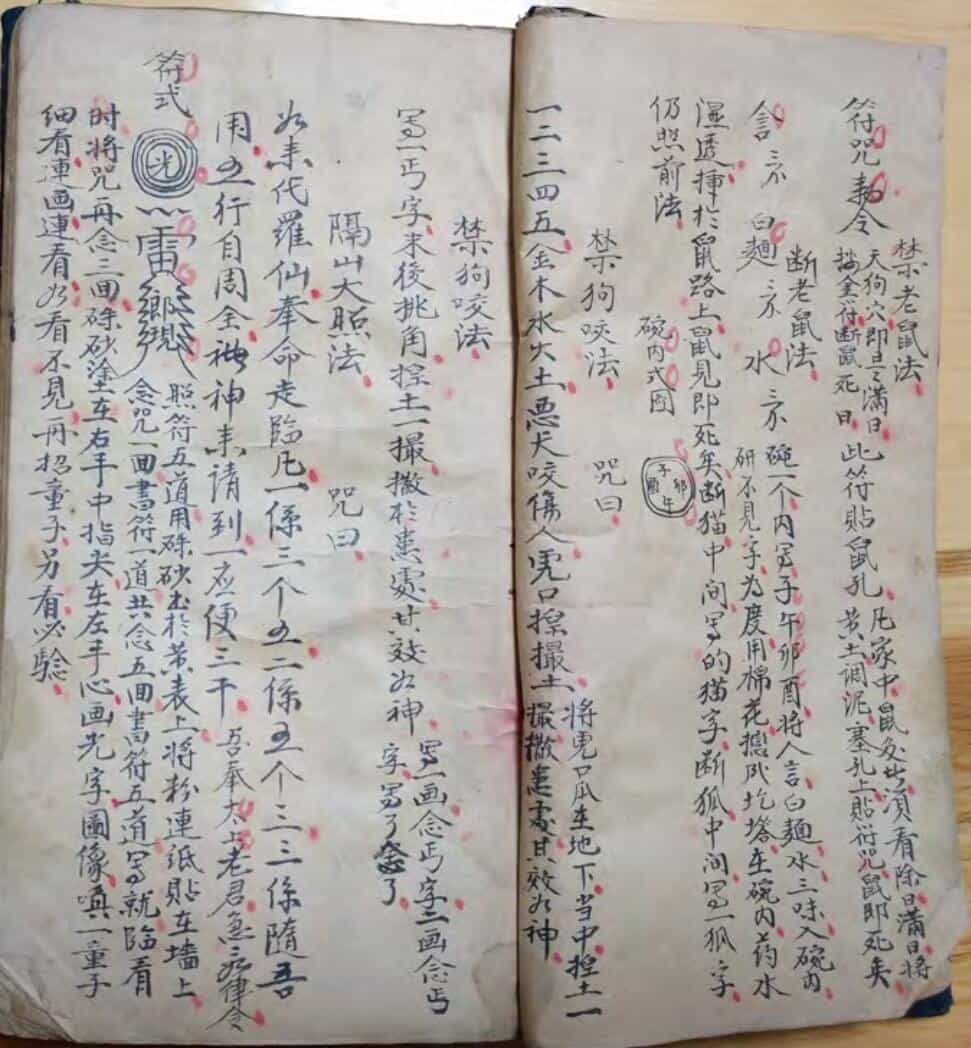 符咒勅令
禁老鼠法
天狗穴即是满日
揭金符断鼠死日
此符貼鼠孔
凡家中鼠多出須看除日满日將
黄土调泥塞孔上貼符咒鼠即死矣
言 白麵 水
断老鼠法
碗一个内写子午卯酉將人言白麵水三味入碗内
研不見字为度用棉花 圪塔在碗内药水
濕透揷於鼠路上鼠見即死矣断猫中间写的猫字断狐中间写一狐字
仍照前法
碗内式图
子 卯 午 酉
禁狗咬法
咒曰
一二三四五金木水火土恶犬咬傷人虎口揑撮土
將虎口爪在地下当中揑土一
撮撒患處其效如神
禁狗咬法
写一丐字末後挑角揑土一撮撒於患處其效如神
写一画念丐字二画念丐
字写了念了
隔山大照法
咒曰
如来代羅仙奉命走臨凡一係三个五二係五个三三係隨吾
用五行自周全 神来请到一应便三干
吾奉太上老君急急如律令
符式
光
雷
照符五道用硃砂书於黄表上將粉連纸貼在墙上
念咒一回書符一道共念五回書符五道写就臨看
时將咒再念三回硃砂塗在右手中指尖在左手心画光字圖像嘱一童子
细看連画連看如看不見再招童子另看必驗